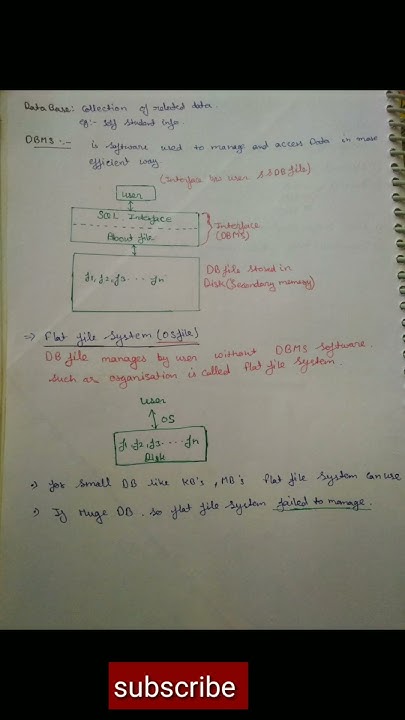 DataBase: Collection of related data.
eg:- student info.
DBMS :- is software used to manage and access Data in more
efficient way.
(Interface b/w user & DB file)
user
SQL Interface
About file
Interface
(DBMS)
f1, f2, f3 .... fn
DB file stored in
Disk (Secondary memory)
⇒ Flat file System (OS file)
DB file manages by user without DBMS software.
such an organisation is called flat file system.
user
OS
f1, f2, f3 .... fn
Disk
for small DB like KB's, MB's flat file system can use
If Huge DB. so flat file system failed to manage.
subscribe